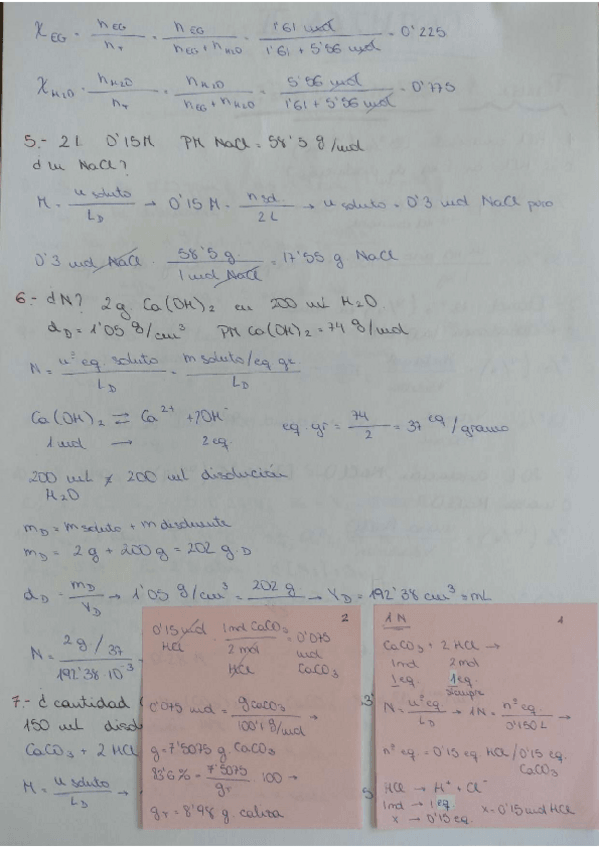 X EG = n EG / n T = n EG / n EG + n H2O = 1'61 mol / 1'61 + 5'56 mol = 0'225
X H2O = n H2O / n T = n H2O / n EG + n H2O = 5'56 mol / 1'61 + 5'56 mol = 0'775
5.- 2 L 0'15 M PM NaCl = 58'5 g/mol
¿m NaCl?
M = n soluto / L D → 0'15 M = n sol / 2 L → n soluto = 0'3 mol NaCl puro
0'3 mol NaCl · 58'5 g. / 1 mol NaCl = 17'55 g NaCl
6.- ¿N? 2 g. Ca(OH)2 en 200 mL H2O
d D = 1'05 g/cm³ PM Ca(OH)2 = 74 g/mol
N = nº eq. soluto / L D = m soluto/eq gr / L D
Ca(OH)2 ⇌ Ca²⁺ + 2OH⁻
1 mol → 2 eq.
eq. gr = 74 / 2 = 37 eq/gramo
200 mL H2O ≠ 200 ml disolución
m D = m soluto + m disolvente
m D = 2 g + 200 g = 202 g D
d D = m D / V D → 1'05 g/cm³ = 202 g. / V D → V D = 192'38 cm³ = mL
N = 2 g. / 37 / 192'38·10⁻³
7.- ¿cantidad
150 ml
CaCO3 + 2 HCl
M = n soluto / L D →
2
0'15 mol HCl · 1 mol CaCO3 / 2 mol HCl = 0'075 mol CaCO3
0'075 mol = g CaCO3 / 100'1 g/mol →
g = 7'5075 g. CaCO3
83'6% = 7'5075 / gr · 100 →
gr = 8'98 g. caliza
1 N
1
CaCO3 + 2 HCl →
1 mol 2 mol
1 eq. 1 eq. siempre
N = nº eq. / L D → 1N = nº eq. / 0'150 L →
nº eq = 0'15 eq. HCl / 0'15 eq. CaCO3
HCl → H⁺ + Cl⁻
1 mol → 1 eq.
x → 0'15 eq.
x = 0'15 mol HCl